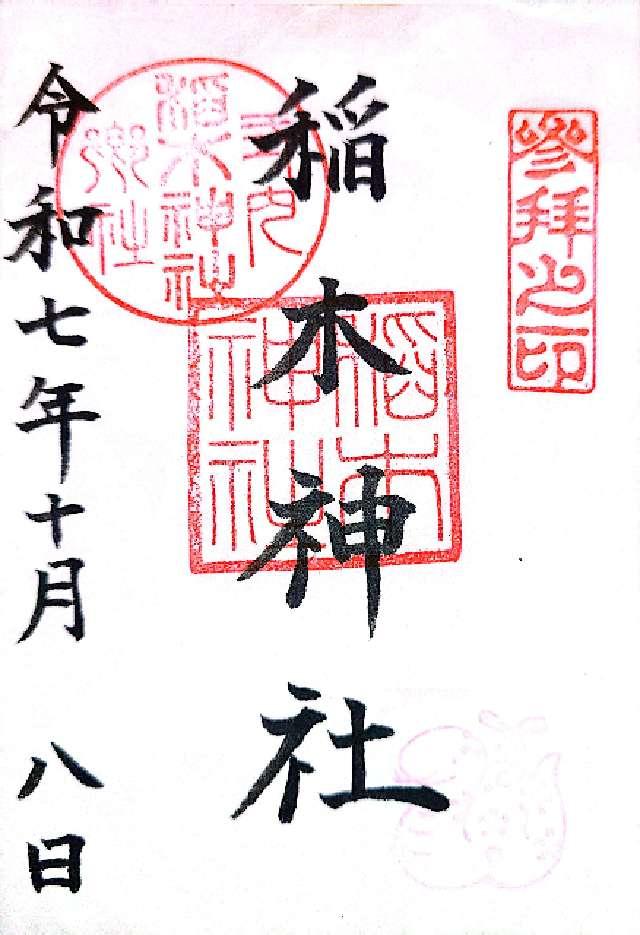 參拜之印
稲木神社
稲木神社
稲木神社
郷社
令和七年十月八日